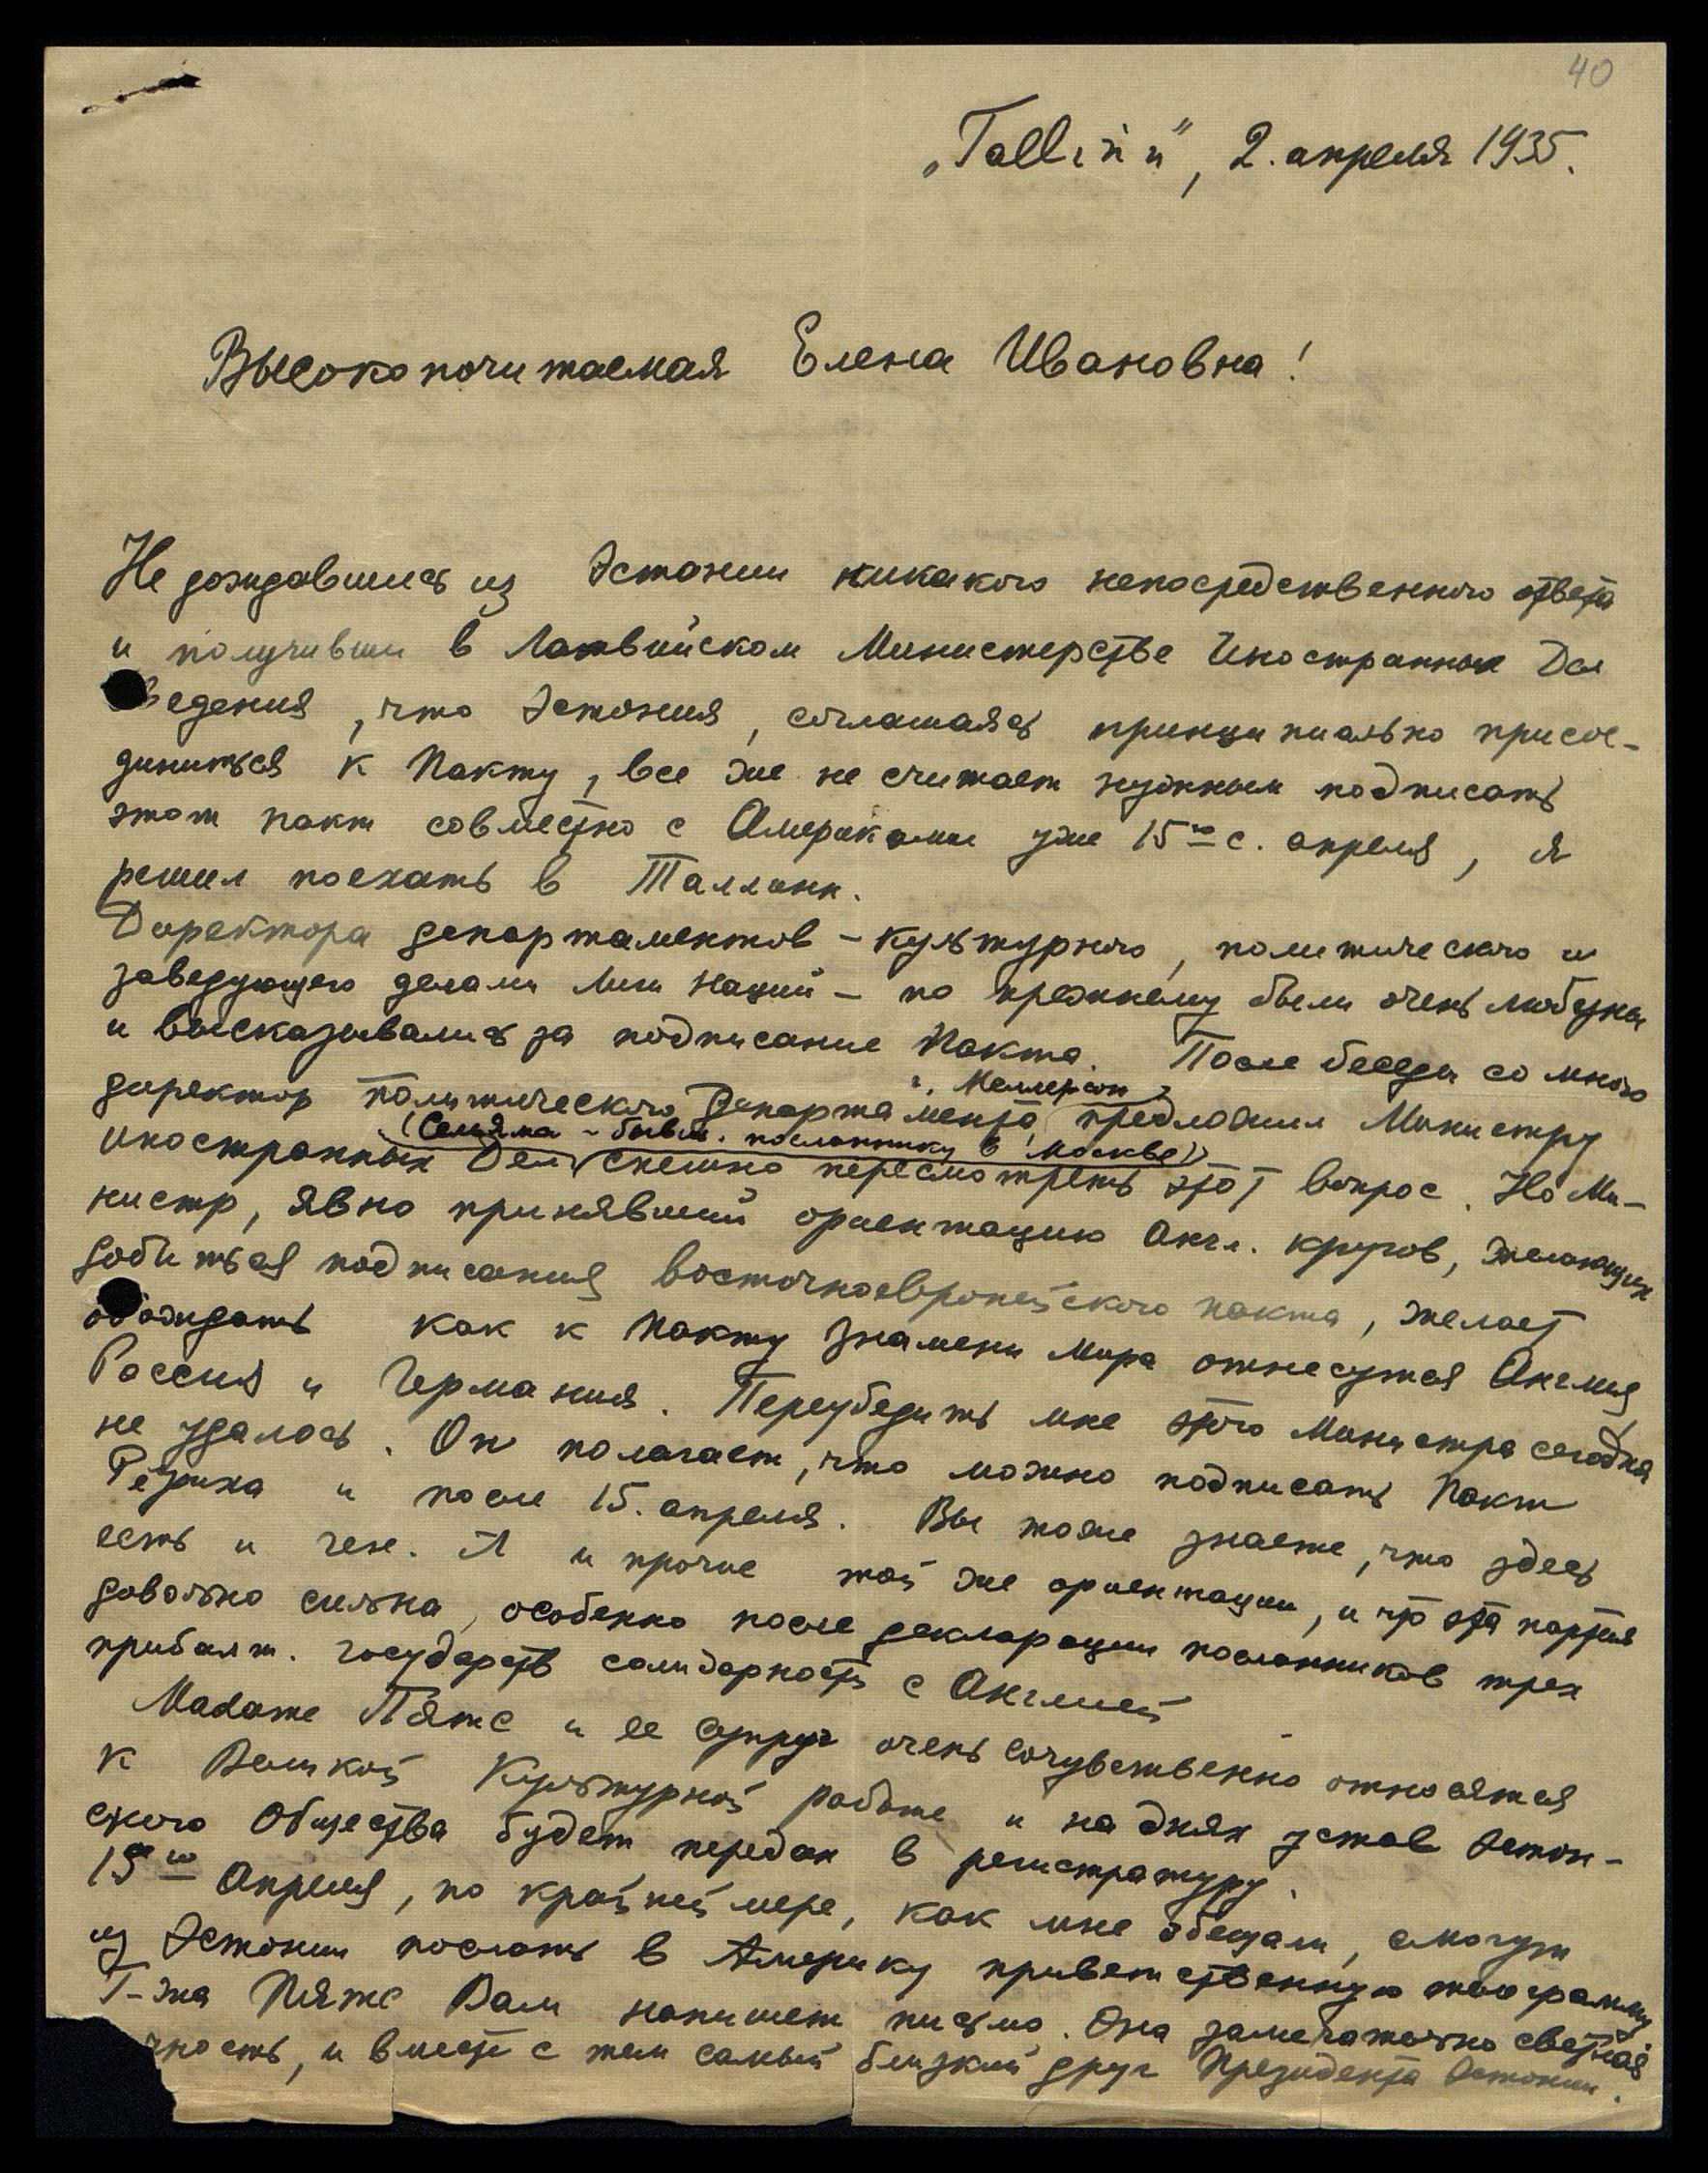 40
„Tallinn", 2. апреля 1935.
Высокопочитаемая Елена Ивановна!
Не дождавшись из Эстонии никакого непосредственного ответа
и получивши в Латвийском Министерстве Иностранных Дел
ведения, что Эстония, соглашаясь принципиально присое-
диниться к Пакту, все же не считает нужным подписать
этот пакт совместно с Америками уже 15го с. апреля, я
решил поехать в Таллинн.
Директора департаментов – культурного, политического и
заведующего делами Лиги Наций – по прежнему были очень любезны
и высказывались за подписание Пакта. После беседы со мною
директор политического Департамента г. Меллерсон предложил Министру
Иностранных Дел (Сельяма – бывш. посланнику в Москве) спешно пересмотреть этот вопрос. Но Ми-
нистр, явно принявший ориентацию Англ. кругов, желающих
добиться подписания восточноевропейского пакта, желает
обождать как к Пакту Знамени Мира отнесутся Англия
Россия и Германия. Переубедить мне этого Министра сегодня
не удалось. Он полагает, что можно подписать Пакт
Рериха и после 15. апреля. Вы тоже знаете, что здесь
есть и ген. Л и прочие той же ориентации, и что эта партия
довольно сильна, особенно после декларации посланников трех
прибалт. государств солидарности с Англией
Madame Пятс и ее супруг очень сочувственно относятся
к Великой Культурной работе и на днях устав Эстон-
ского Общества будет передан в регистратуру.
15го Апреля, по крайней мере, как мне обещали, смогут
из Эстонии послать в Америку приветственную телеграмму
Г-жа Пятс Вам напишет письмо. Она замечательно светлая
чность, и вместе с тем самый близкий друг Президента Эстонии.